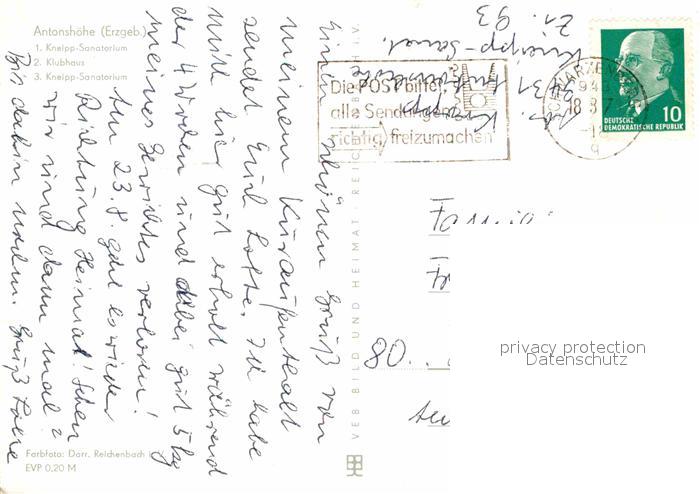 Antonshöhe (Erzgeb.)
1. Kneipp-Sanatorium
2. Klubhaus
3. Kneipp-Sanatorium
Einen schönen Gruß von
meinem Kuraufenthalt
sendet Euch Lotte. Ich habe
mich hier gut erholt während
der 4 Wochen und dabei gut 5 kg
meines Gewichtes verloren!
Am 23.8. geht es wieder
Richtung Heimat! Sehen
wir uns dann mal?
Bis dahin Gruß Lotte
Farbfoto: Darr. Reichenbach i. V.
EVP 0,20 M
VEB BILD UND HEIMAT · REICHENBACH i. V.
Kneipp-Sanat.
Zi. 93
9431 Antonshöhe
Die POST bittet,
alle Sendungen
richtig freizumachen
943
18.8.7
-18
a
10
DEUTSCHE
DEMOKRATISCHE REPUBLIK
80...
privacy protection
Datenschutz